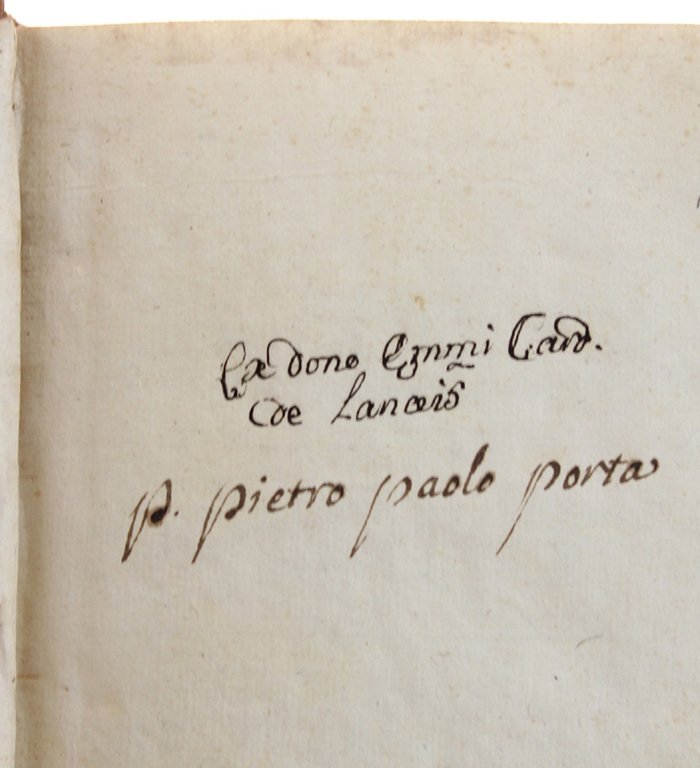 Ex dono Emmi Card.
de Lanceis
p. pietro paolo porta